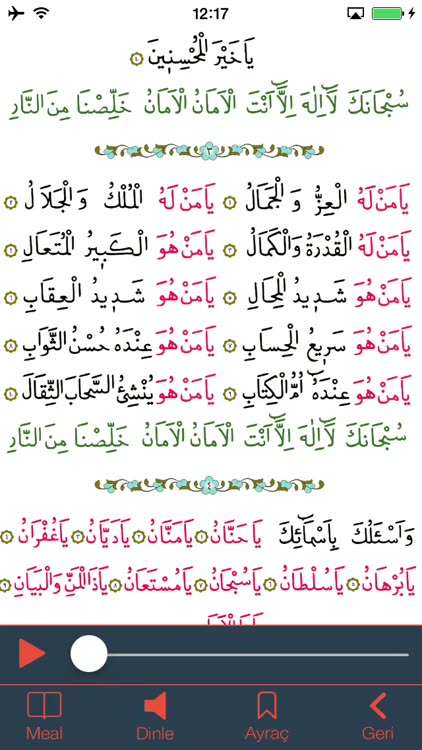 12:17
يَا خَيْرَ الْمُحْسِنِينَ
سُبْحَانَكَ لَٓا اِلٰهَ اِلَّٓا اَنْتَ الْاَمَانُ الْاَمَانُ خَلِّصْنَا مِنَ النَّارِ
٣
يَا مَنْ لَهُ الْعِزُّ وَ الْجَمَالُ ١ يَا مَنْ لَهُ الْمُلْكُ وَ الْجَلَالُ ٢
يَا مَنْ لَهُ الْقُدْرَةُ وَالْكَمَالُ ٣ يَا مَنْ هُوَ الْكَبِيرُ الْمُتَعَالِ ٤
يَا مَنْ هُوَ شَدِيدُ الْمِحَالِ ٥ يَا مَنْ هُوَ شَدِيدُ الْعِقَابِ ٦
يَا مَنْ هُوَ سَرِيعُ الْحِسَابِ ٧ يَا مَنْ هُوَ عِنْدَهُ حُسْنُ الثَّوَابِ ٨
يَا مَنْ هُوَ عِنْدَهُٓ اُمُّ الْكِتَابِ ٩ يَا مَنْ هُوَ يُنْشِئُ السَّحَابَ الثِّقَالَ
سُبْحَانَكَ لَٓا اِلٰهَ اِلَّٓا اَنْتَ الْاَمَانُ الْاَمَانُ خَلِّصْنَا مِنَ النَّارِ
٤
وَ اَسْئَلُكَ بِاَسْمَٓائِكَ يَا حَنَّانُ ١ يَا مَنَّانُ ٢ يَا دَيَّانُ ٣ يَا غُفْرَانُ ٤
يَا بُرْهَانُ ٥ يَا سُلْطَانُ ٦ يَا سُبْحَانُ ٧ يَا مُسْتَعَانُ ٨ يَا ذَا الْمَنِّ وَالْبَيَانِ ٩
Meal Dinle Ayraç Geri